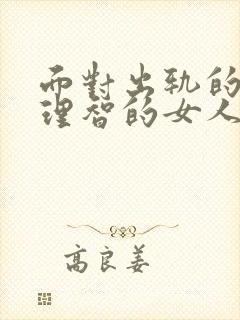 而對出軌的
理智的女人
高良姜